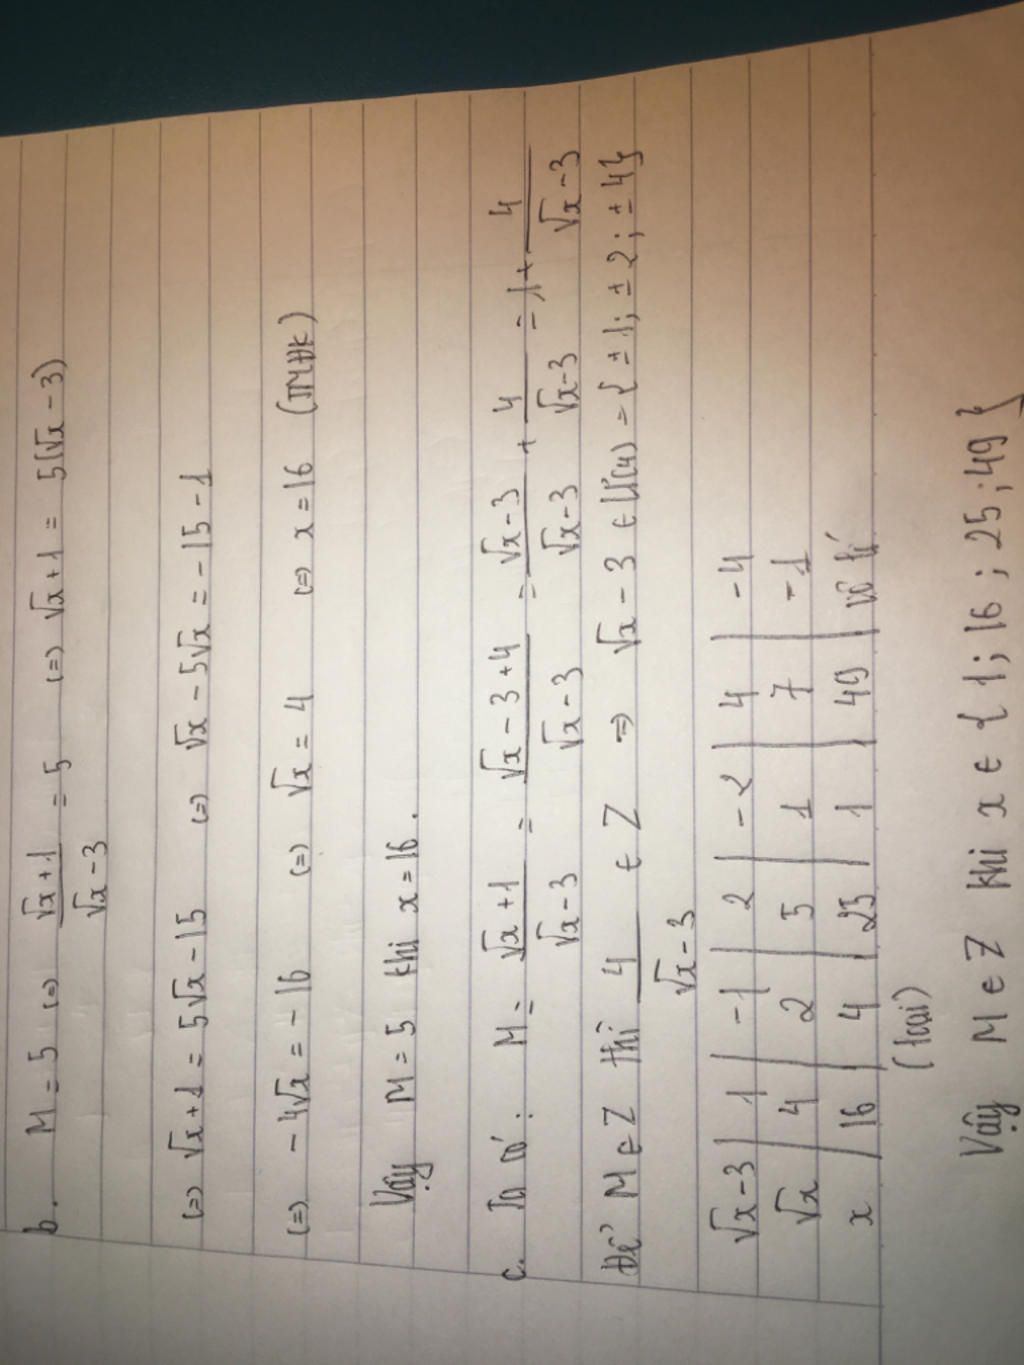 b. M = 5 (=) \frac{√x + 1}{√x - 3} = 5 (=) √x + 1 = 5(√x - 3)
(=) √x + 1 = 5√x - 15 (=) √x - 5√x = -15 - 1
(=) -4√x = -16 (=) √x = 4 (=) x = 16 (TMĐK)
Vậy M = 5 khi x = 16.
c. Ta có: M = \frac{√x + 1}{√x - 3} = \frac{√x - 3 + 4}{√x - 3} = \frac{√x - 3}{√x - 3} + \frac{4}{√x - 3} = 1 + \frac{4}{√x - 3}
Để M ∈ Z thì \frac{4}{√x - 3} ∈ Z => √x - 3 ∈ Ư(4) = {±1; ±2; ±4}
√x - 3 | 1 | -1 | 2 | -2 | 4 | -4
√x | 4 | 2 | 5 | 1 | 7 | -1
x | 16 | 4 | 25 | 1 | 49 | vô lí
(loại)
Vậy M ∈ Z khi x ∈ {1; 16; 25; 49}